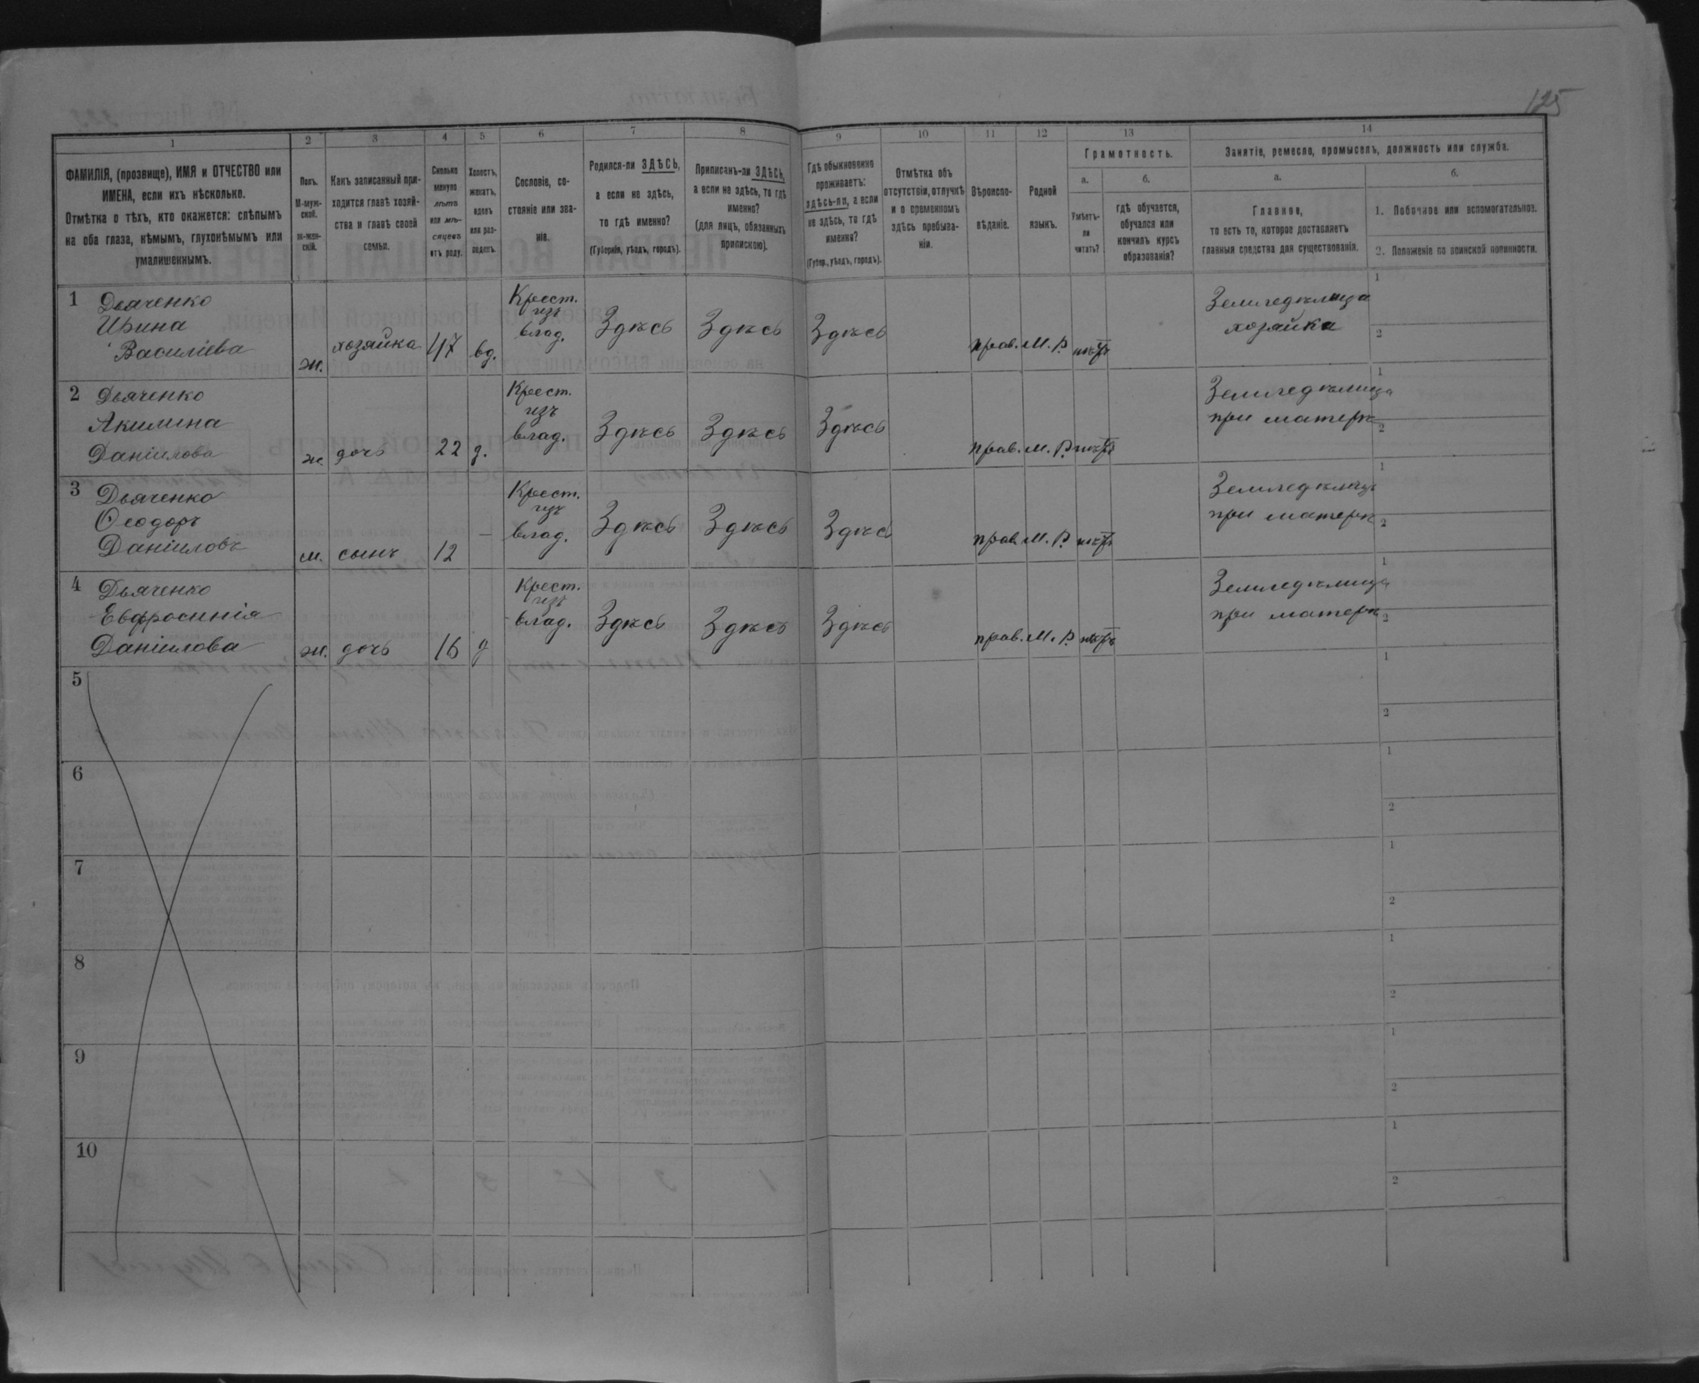 125
1
2
3
4
5
6
7
8
9
10
11
12
13
14
ФАМИЛІЯ, (прозвище), ИМЯ и ОТЧЕСТВО или
ИМЕНА, если ихъ нѣсколько.
Отмѣтка о тѣхъ, кто окажется: слѣпымъ
на оба глаза, нѣмымъ, глухонѣмымъ или
умалишеннымъ.
Полъ.
М-муж-
ской.
ж-жен-
скій.
Какъ записанный при-
ходится главѣ хозяй-
ства и главѣ своей
семьи.
Сколько
минуло
лѣтъ
или мѣ-
сяцевъ
отъ роду.
Холостъ,
женатъ,
вдовъ
или раз-
веденъ.
Сословіе, со-
стояніе или зва-
ніе.
Родился-ли ЗДѢСЬ,
а если не здѣсь,
то гдѣ именно?
(Губернія, уѣздъ, городъ).
Приписанъ-ли ЗДѢСЬ,
а если не здѣсь, то гдѣ
именно?
(для лицъ, обязанныхъ
припискою).
Гдѣ обыкновенно
проживаетъ:
здѣсь-ли, а если
не здѣсь, то гдѣ
именно?
(Губер., уѣздъ, городъ).
Отмѣтка объ
отсутствіи, отлучкѣ
и о временномъ
здѣсь пребыва-
ніи.
Вѣроиспо-
вѣданіе.
Родной
языкъ.
Грамотность.
а.
Умѣетъ-
ли
читать?
б.
гдѣ обучается,
обучался или
кончилъ курсъ
образованія?
Занятіе, ремесло, промыселъ, должность или служба.
а.
Главное,
то есть то, которое доставляетъ
главныя средства для существованія.
б.
1. Побочное или вспомогательное.
2. Положеніе по воинской повинности.
1 Дьяченко
Ирина
Василіева
ж.
хозяйка
47
вд.
Крест.
изъ
влад.
Здѣсь
Здѣсь
Здѣсь
прав.
М. Р.
нѣтъ
Земледѣлица
хозяйка
1
2
2 Дьяченко
Акилина
Даніилова
ж.
дочь
22
д.
Крест.
изъ
влад.
Здѣсь
Здѣсь
Здѣсь
прав.
М. Р.
нѣтъ
Земледѣлица
при матери
1
2
3 Дьяченко
Ѳеодоръ
Даніиловъ
м.
сынъ
12
-
Крест.
изъ
влад.
Здѣсь
Здѣсь
Здѣсь
прав.
М. Р.
нѣтъ
Земледѣлецъ
при матери
1
2
4 Дьяченко
Евфросинія
Даніилова
ж.
дочь
16
д
Крест.
изъ
влад.
Здѣсь
Здѣсь
Здѣсь
прав.
М. Р.
нѣтъ
Земледѣлица
при матери
1
2
5
1
2
6
1
2
7
1
2
8
1
2
9
1
2
10
1
2